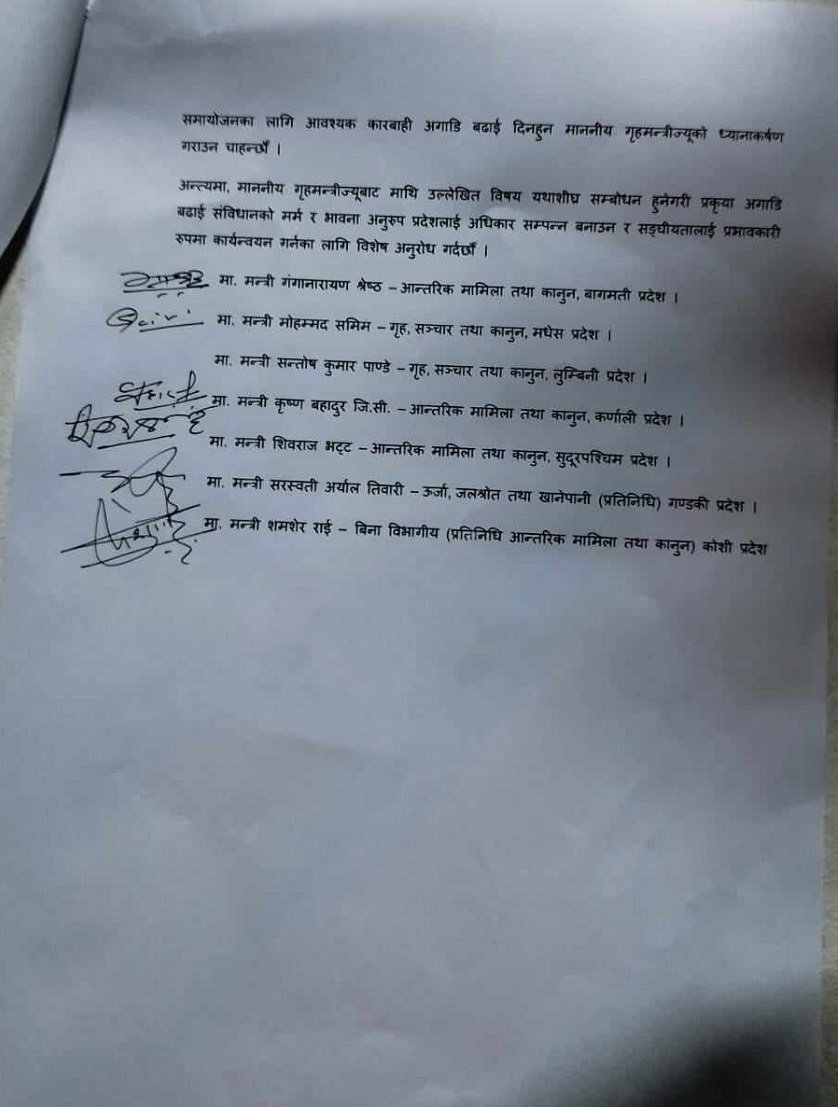 समायोजनका लागि आवश्यक कारबाही अगाडि बढाई दिनहुन माननीय गृहमन्त्रीज्यूको ध्यानाकर्षण
गराउन चाहन्छौँ ।
अन्त्यमा, माननीय गृहमन्त्रीज्यूबाट माथि उल्लेखित विषय यथाशीघ्र सम्बोधन हुनेगरी प्रकृया अगाडि
बढाई संविधानको मर्म र भावना अनुरुप प्रदेशलाई अधिकार सम्पन्न बनाउन र सङ्घीयतालाई प्रभावकारी
रुपमा कार्यन्वयन गर्नका लागि विशेष अनुरोध गर्दछौँ ।
मा. मन्त्री गंगानारायण श्रेष्ठ – आन्तरिक मामिला तथा कानुन, बागमती प्रदेश ।
मा. मन्त्री मोहम्मद समिम – गृह, सञ्चार तथा कानुन, मधेस प्रदेश ।
मा. मन्त्री सन्तोष कुमार पाण्डे – गृह, सञ्चार तथा कानुन, लुम्बिनी प्रदेश ।
मा. मन्त्री कृष्ण बहादुर जि.सी. – आन्तरिक मामिला तथा कानुन, कर्णाली प्रदेश ।
मा. मन्त्री शिवराज भट्ट – आन्तरिक मामिला तथा कानुन, सुदूरपश्चिम प्रदेश ।
मा. मन्त्री सरस्वती अर्याल तिवारी – ऊर्जा, जलश्रोत तथा खानेपानी (प्रतिनिधि) गण्डकी प्रदेश ।
मा. मन्त्री शमशेर राई – बिना विभागीय (प्रतिनिधि आन्तरिक मामिला तथा कानुन) कोशी प्रदेश